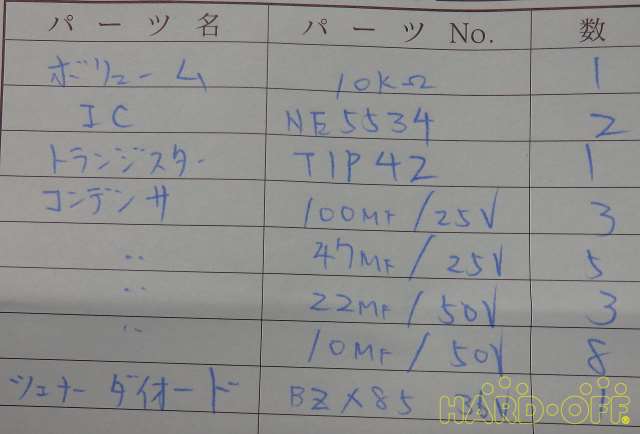 パーツ名 パーツ No. 数
ボリューム 10KΩ 1
IC NE5534 2
トランジスター TIP42 1
コンデンサ 100MF/25V 3
〃 47MF/25V 5
〃 22MF/50V 3
〃 10MF/50V 8
ツェナーダイオード BZX85 1
HARD-OFF